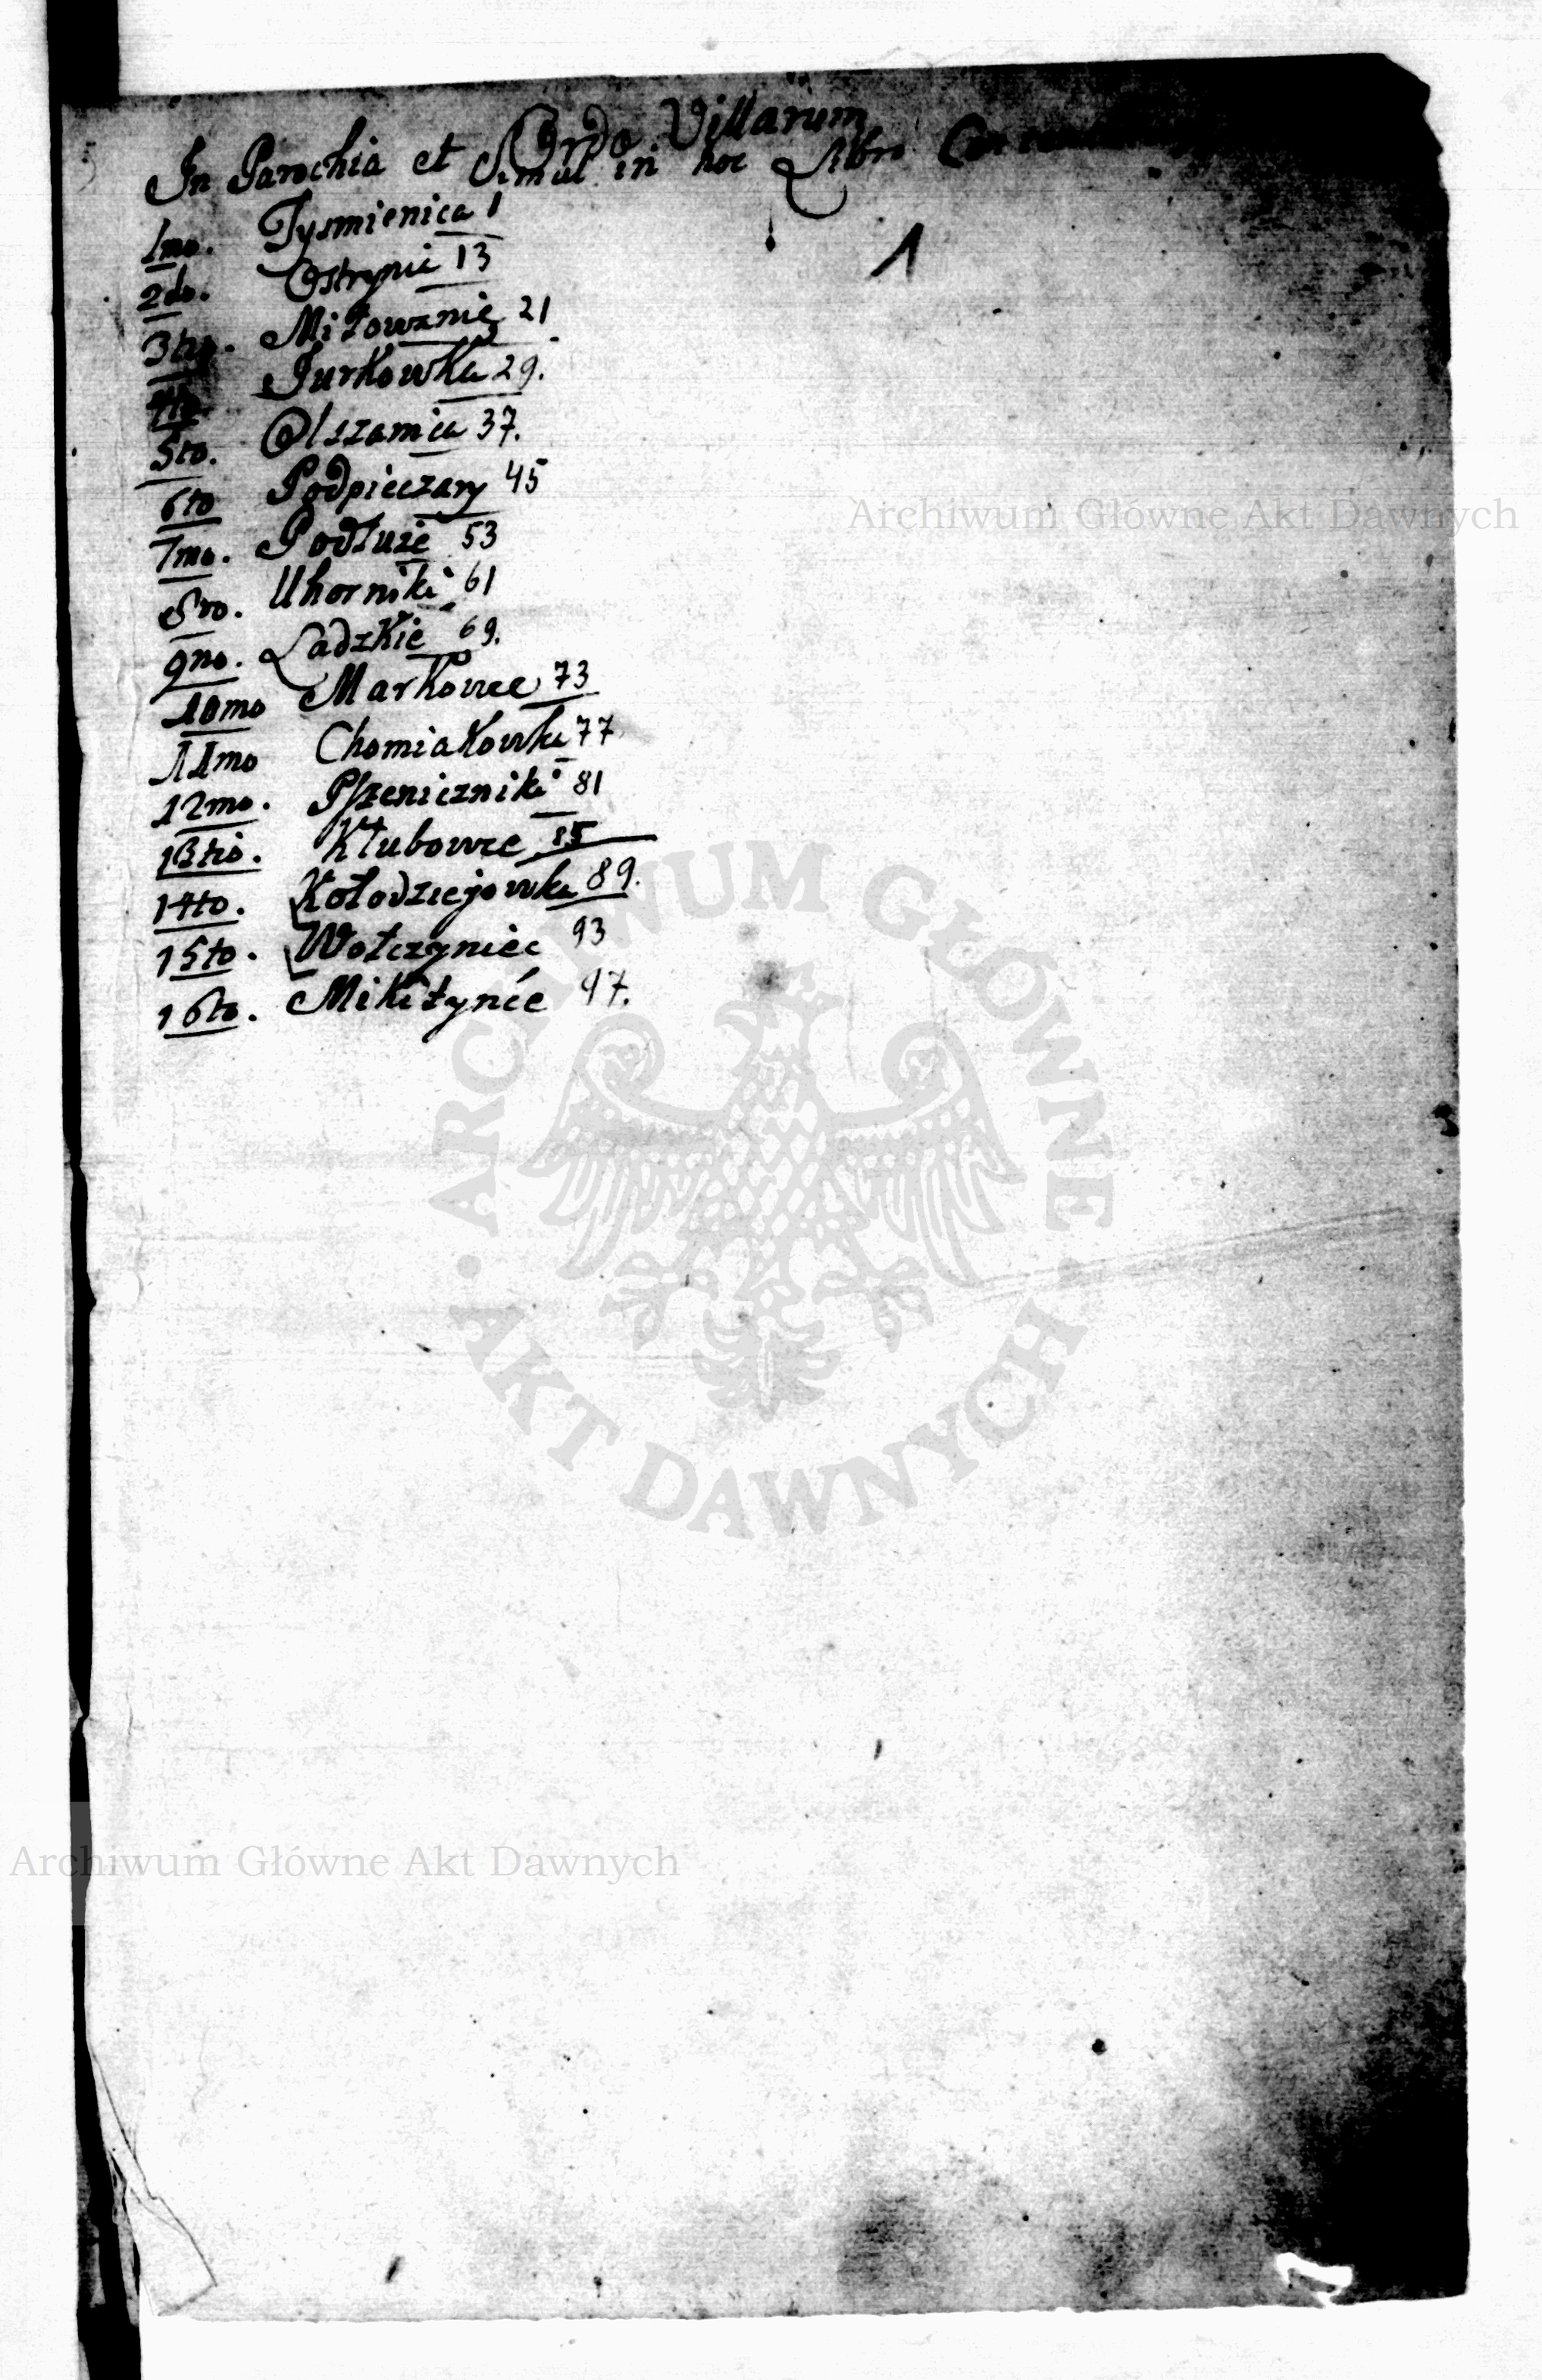 Ordo Villarum
In Parochia et Simul in hoc Libro
1
1mo. Tysmienica 1
2do. Ostrynie 13
3tio. Miłowanie 21
4to. Jurkowka 29.
5to. Olszanica 37.
6to Podpieczary 45
7mo. Podłuże 53
8vo. Uhorniki 61
9no. Ladzkie 69.
10mo Markowce 73
11mo Chomiakowka 77
12mo. Pszeniczniki 81
13tio. Kłubowce 85
14to. Kołodziejowka 89.
15to. Wołczyniec 93
16to. Mikityńce 97.
Archiwum Główne Akt Dawnych
ARCHIWUM GŁÓWNE
AKT DAWNYCH
Archiwum Główne Akt Dawnych